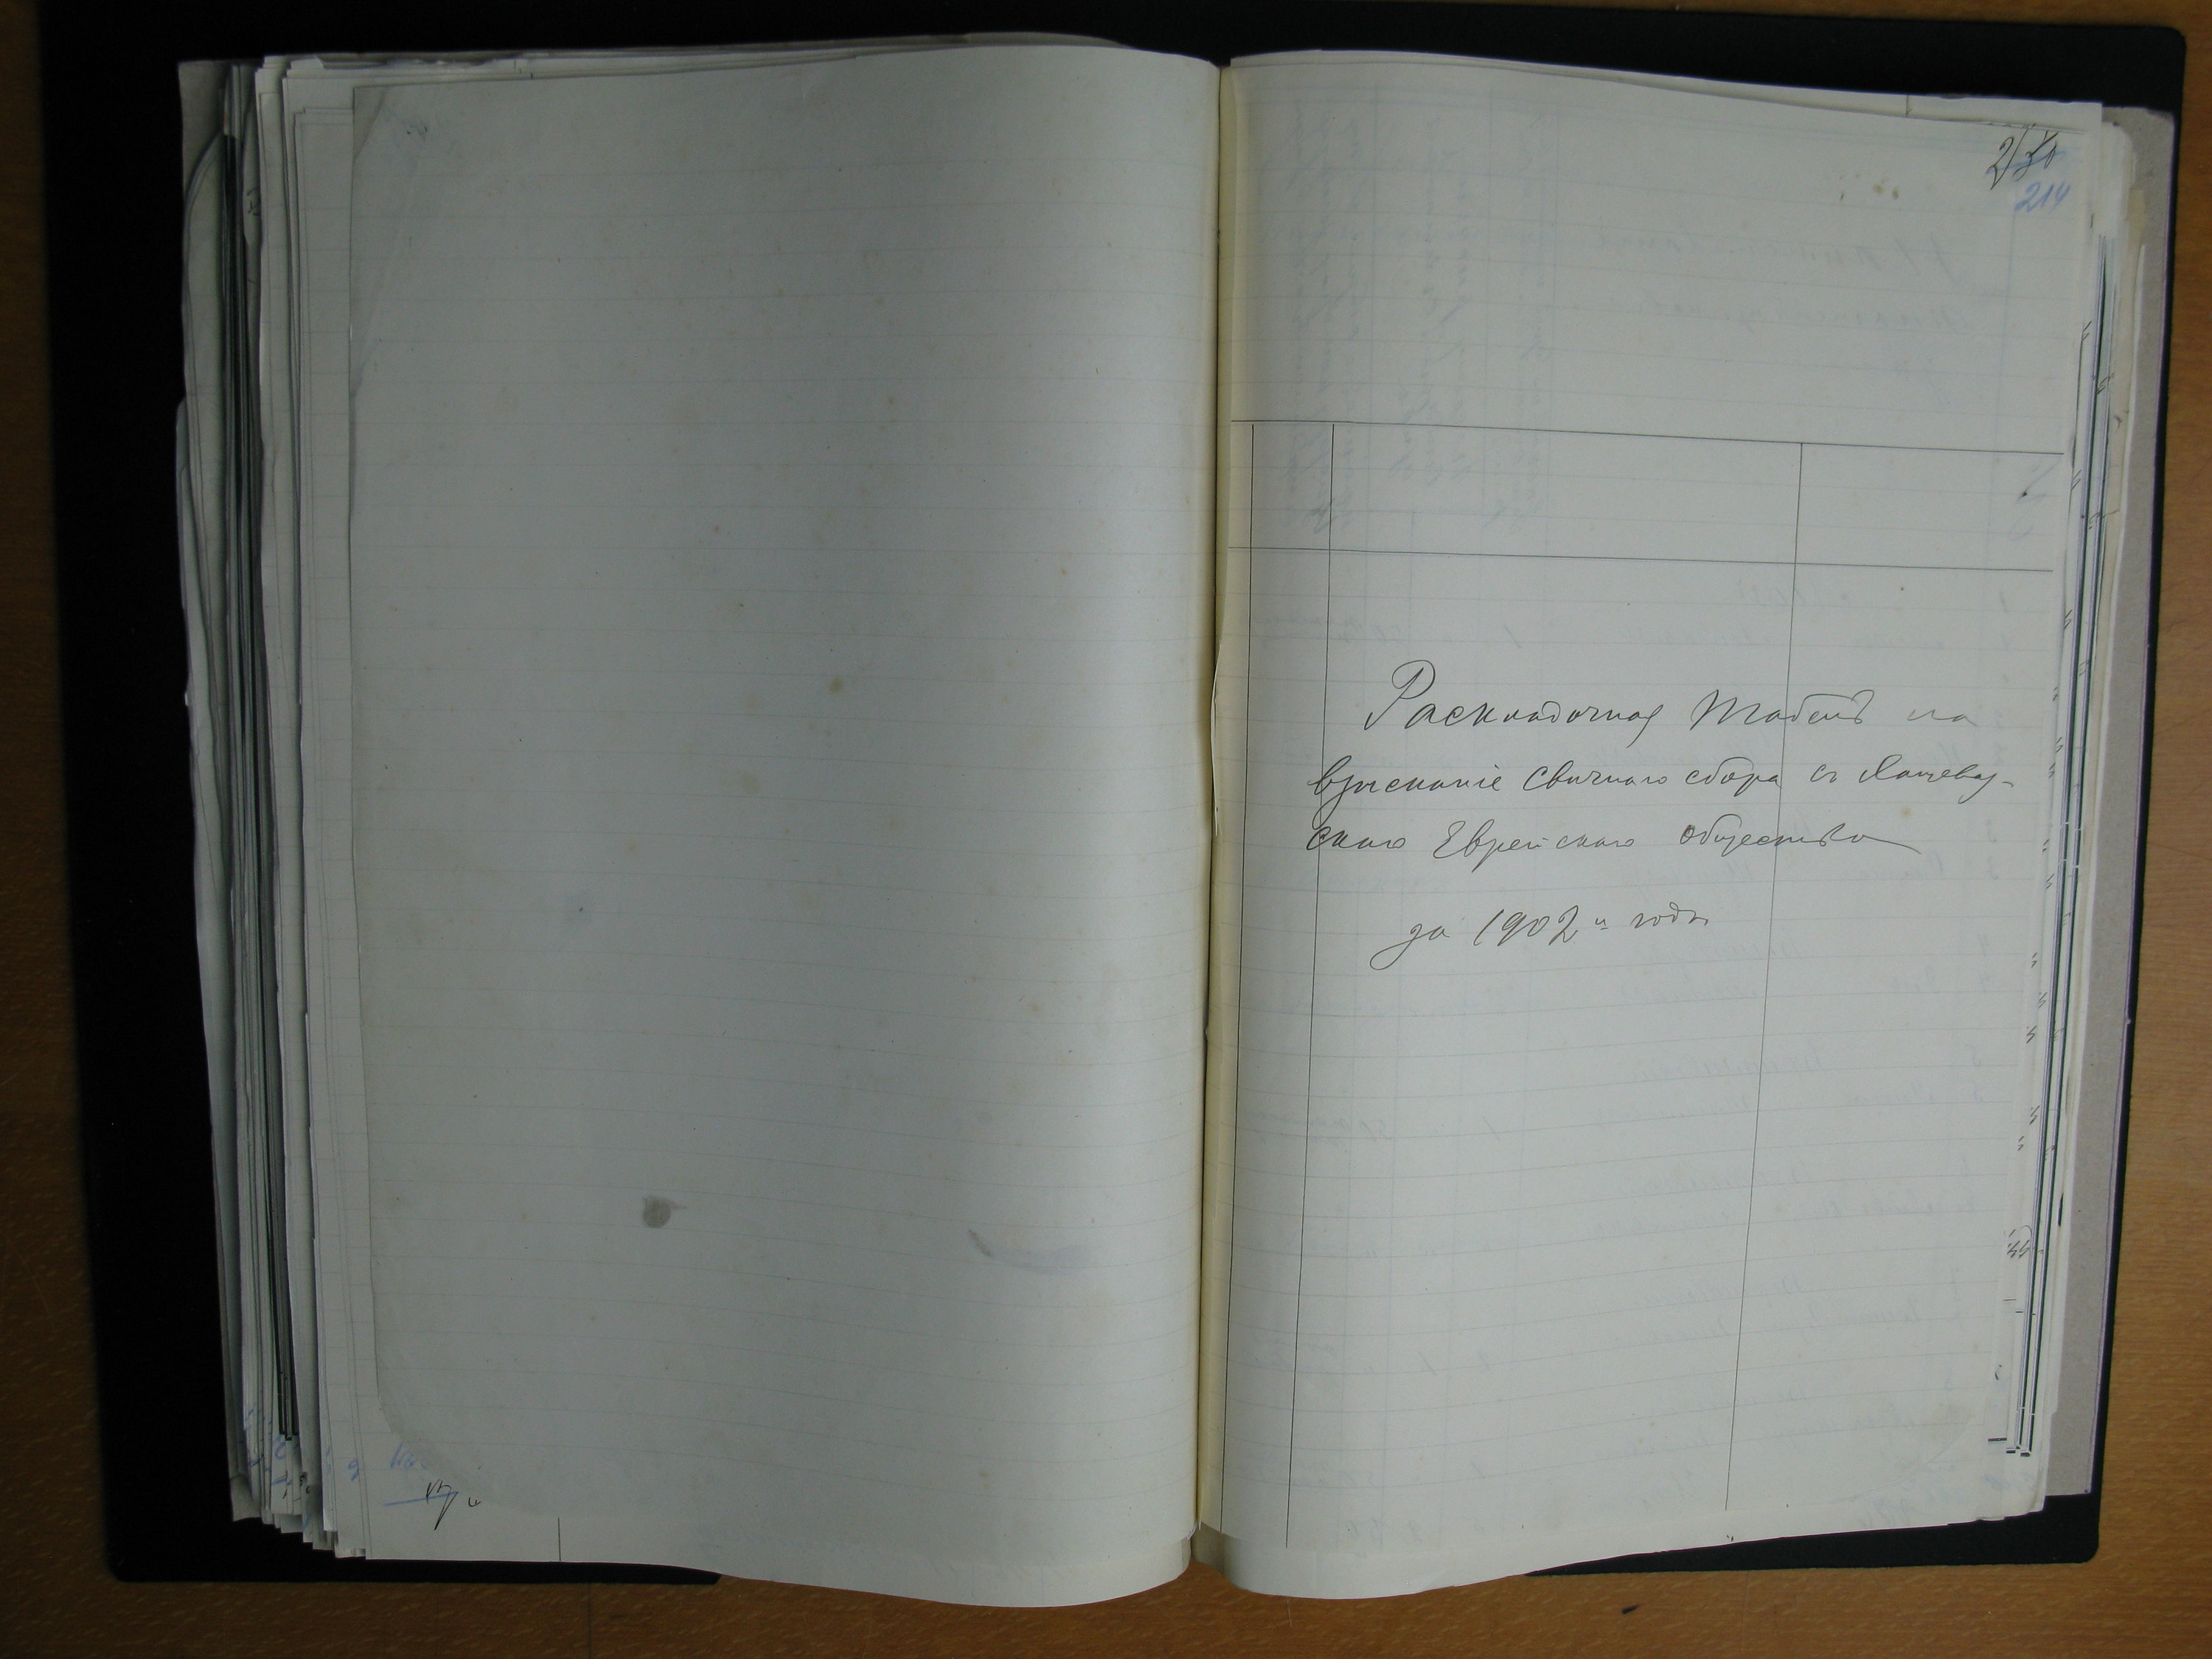 214
Раскладочная табель на
взысканіе свѣчнаго сбора съ
скаго Еврейскаго общества
за 1902й годъ